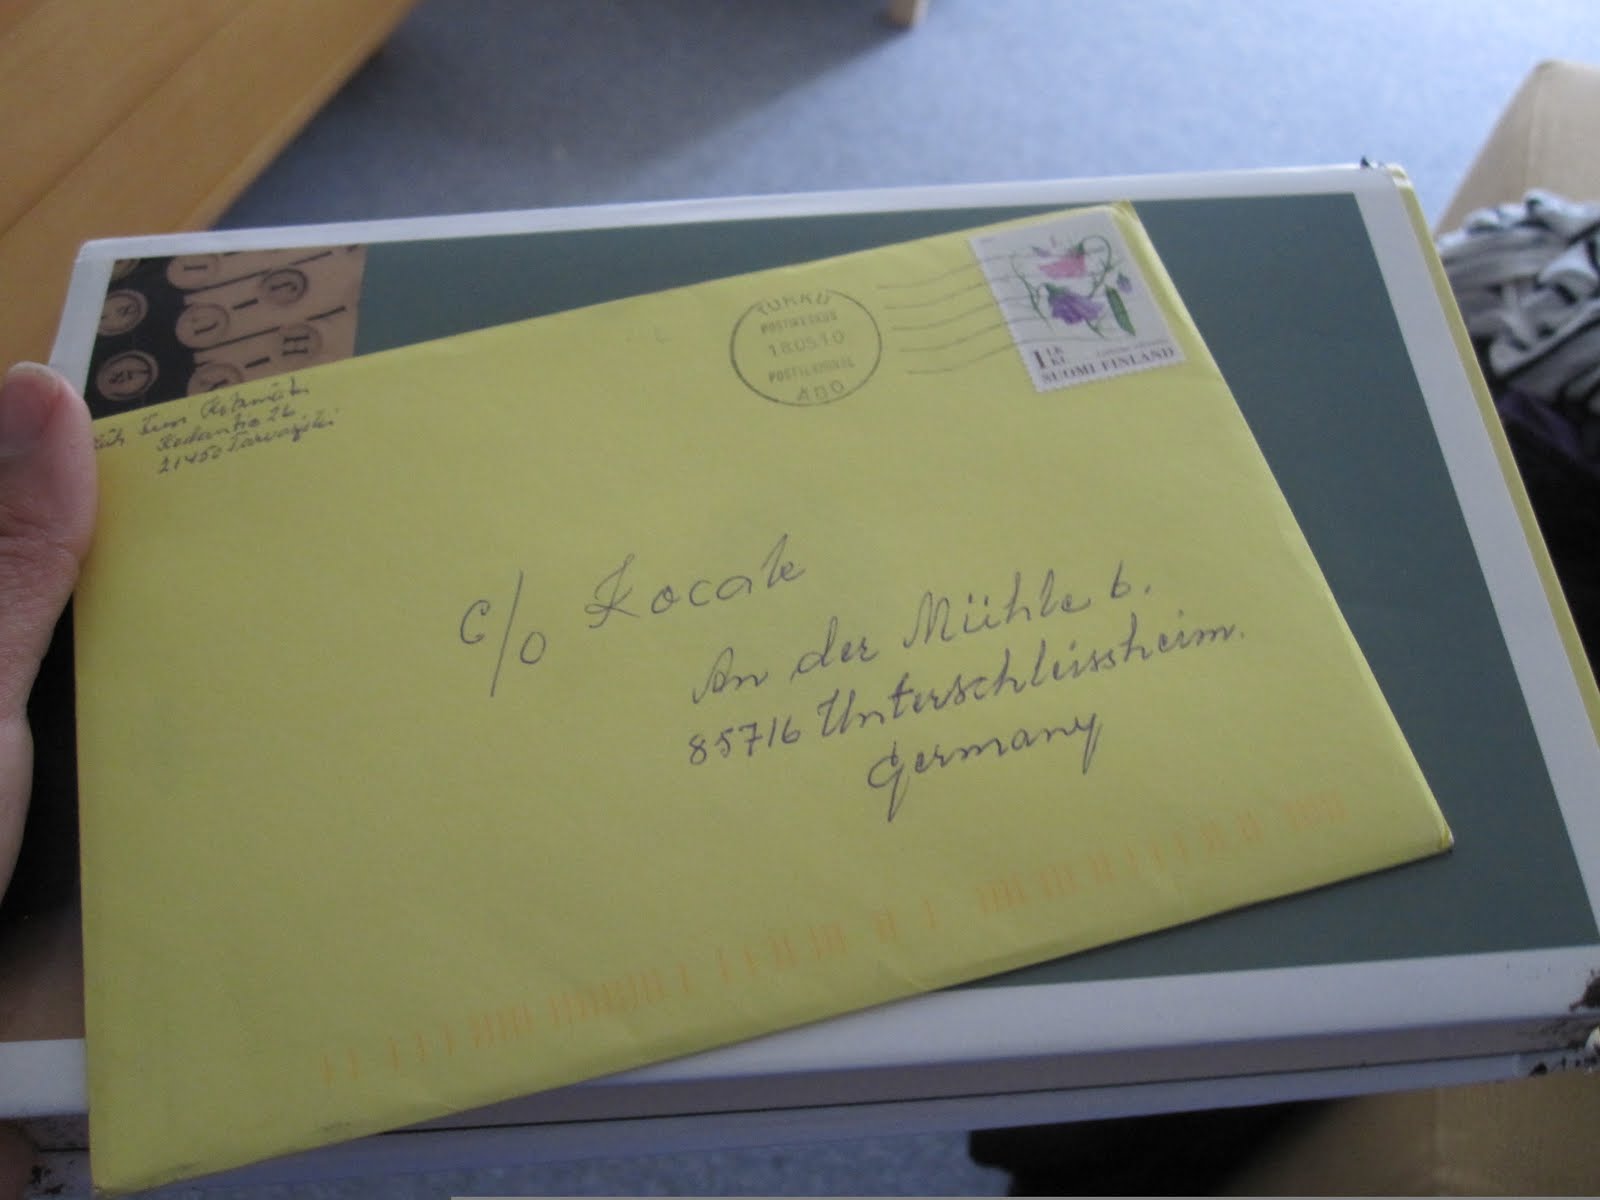 TURKU
POSTIKESKUS
18.05.10
POSTICENTRAL
ÅBO
1 LK KL
SUOMI FINLAND
21450 Tarvasjoki
c/o Kocak
An der Mühle 6.
85716 Unterschleissheim.
Germany
U I J
H